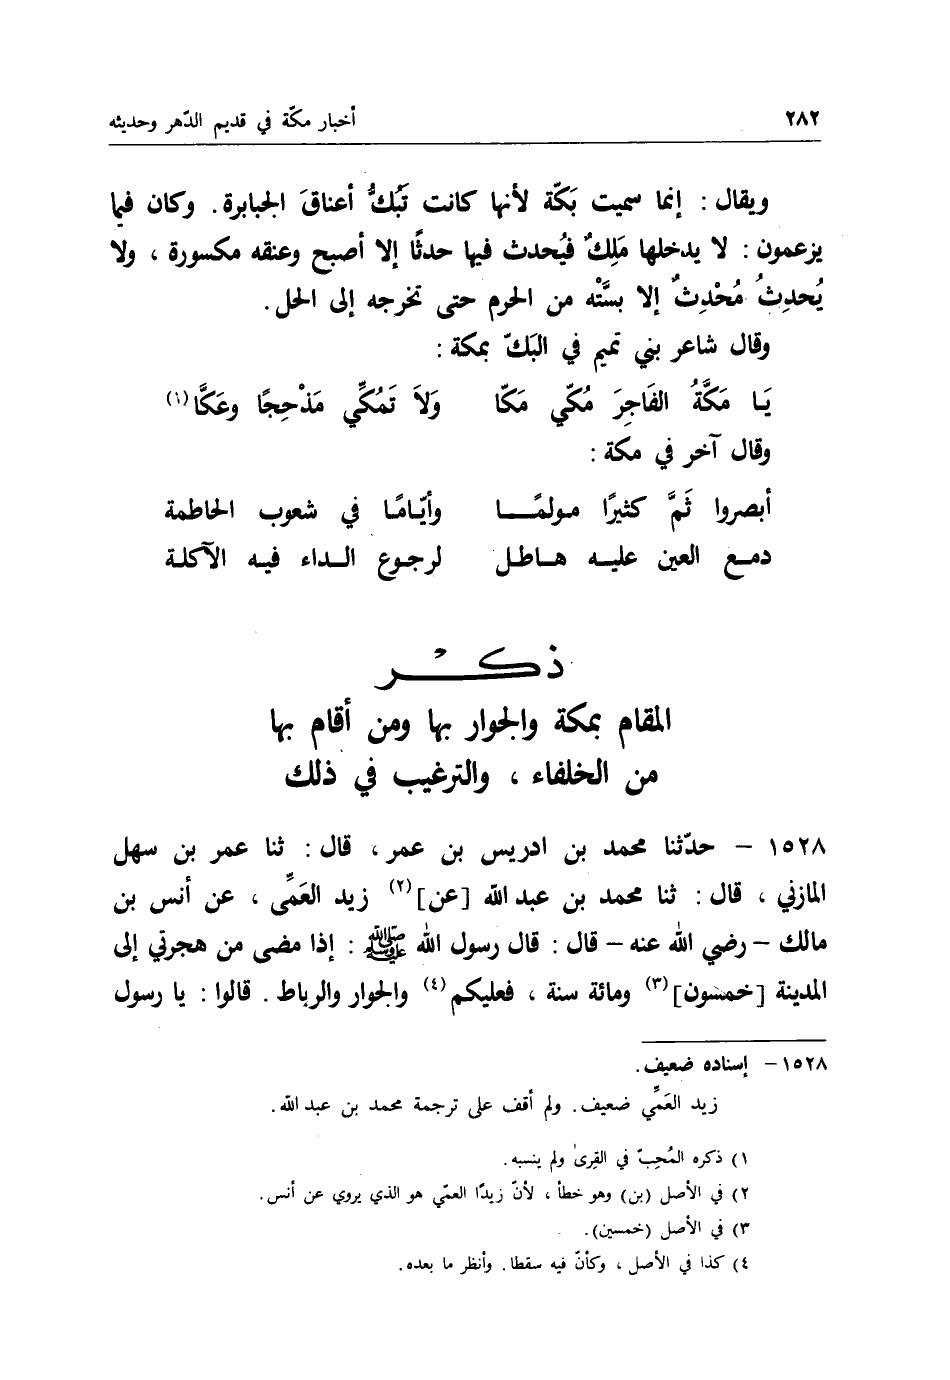 ٢٨٢ أخبار مكّة في قديم الدّهر وحديثه
ويقال : إنما سميت بَكّة لأنها كانت تَبُكُّ أعناقَ الجبابرة . وكان فيما
يزعمون : لا يدخلها مَلِكٌ فيُحدث فيها حدثًا إلا أصبح وعنقه مكسورة ، ولا
يُحدِثُ مُحْدِثٌ إلا بسَّتْه من الحرم حتى تخرجه إلى الحل .
وقال شاعر بني تميم في البَكّ بمكة :
يَا مَكَّةُ الفَاجِرَ مُكّي مَكّا وَلاَ تَمُكِّي مَذْحِجًا وعَكَّا(١)
وقال آخر في مكة :
أبصروا ثَمَّ كثيرًا مولمًـــا وأيّامًا في شعوب الحاطمة
دمـع العين عليـه هـاطـل لرجـوع الـداء فيـه الآكلـة
ذكـــر
المقام بمكة والجوار بها ومن أقام بها
من الخلفاء ، والترغيب في ذلك
١٥٢٨ – حدّثنا محمد بن ادريس بن عمر ، قال : ثنا عمر بن سهل
المازني ، قال : ثنا محمد بن عبد الله [عن](٢) زيد العَمِّى ، عن أنس بن
مالك – رضي الله عنه – قال : قال رسول الله ﷺ : إذا مضى من هجرتي إلى
المدينة [خمسون](٣) ومائة سنة ، فعليكم(٤) والجوار والرباط . قالوا : يا رسول
١٥٢٨ – إسناده ضعيف .
زيد العَمِّي ضعيف . ولم أقف على ترجمة محمد بن عبد الله .
١) ذكره المُحِبّ في القِرىٰ ولم ينسبه .
٢) في الأصل (بن) وهو خطأ ، لأنّ زيدًا العمّي هو الذي يروي عن أنس .
٣) في الأصل (خمسين) .
٤) كذا في الأصل ، وكأنّ فيه سقطا . وأنظر ما بعده .